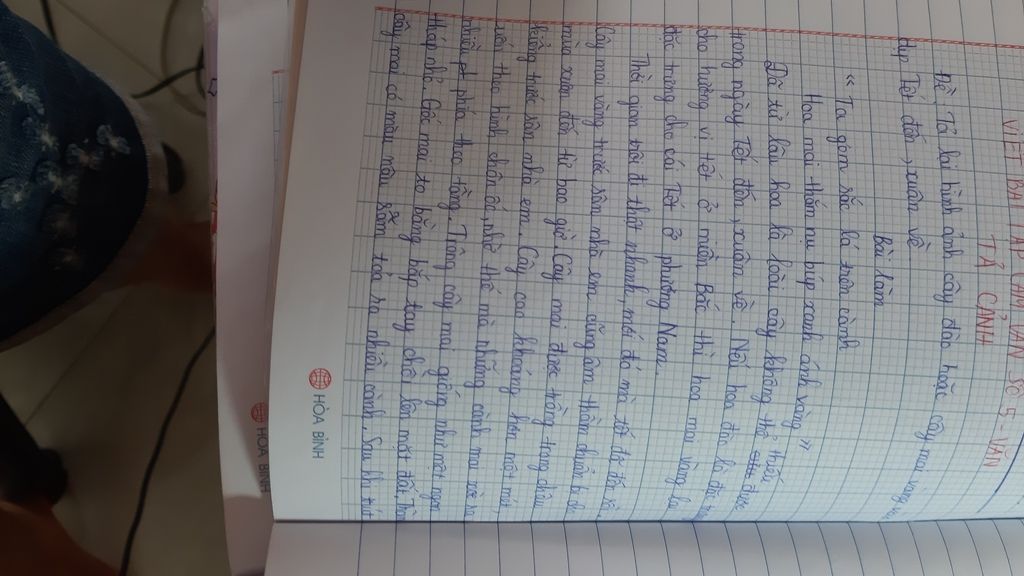 VIẾT BÀI TẬP LÀM VĂN SỐ 5 - VĂN
TẢ CẢNH
Đề: Tả lại hình ảnh cây đào hoặc cây mai vàng vào
dịp Tết đến, xuân về
Bài làm
“ Ta gom sắc lá trên cành
Hoa mai thắm nụ búp xanh ánh vàng ”
Đã từ lâu hoa là loài cây không thể thiếu được
trong ngày Tết đến, xuân về. Nếu hoa đào là đặc
cho hương vị tết ở miền Bắc thì hoa mai vàng là
đặc trưng cho cái Tết ở phương Nam.
Thời gian trôi đi thật nhanh, mới đó mà tết đã tới rồi
Cây mai vàng trước sân nhà em cũng âm thầm chuẩn bị
mùa xuân đến từ bao giờ. Cây mai được trồng trong chậu
kiểng trước sân nhà em. Cây cao khoảng hơn một mét,
uốn theo hình chân, nhờ thế mà những cành mai xòe ra
nhiều phía theo tầng. Trông cây mai giống như một ngọn
tháp nhỏ. Gốc mai to bằng bắp tay chồi lên mặt đất, thân
cây mai có màu nâu sẫm toả ra nhiều cành. Sau khi trút
HÒA BÌNH
HÒA BÌNH